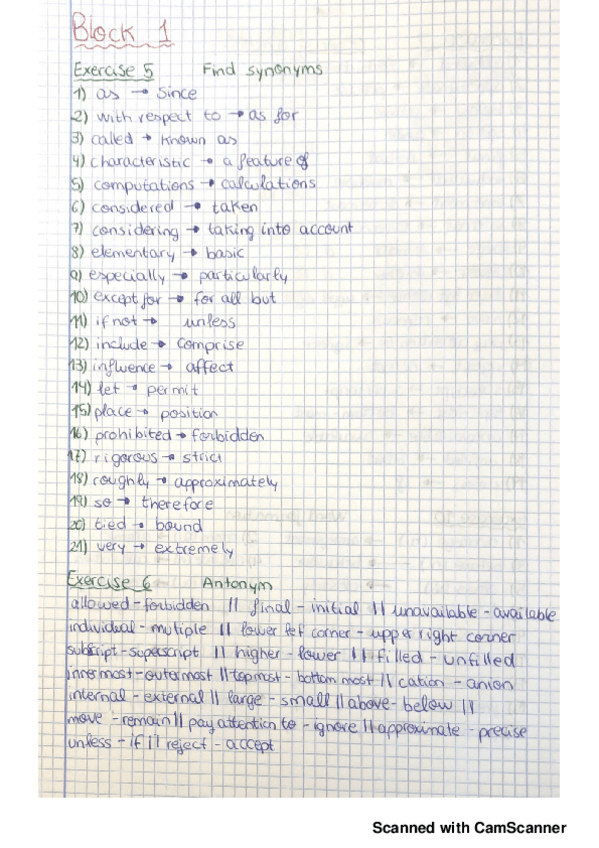 Block 1
Exercise 5 Find synonyms
1) as → since
2) with respect to → as for
3) called → known as
4) characteristic → a feature of
5) computations → calculations
6) considered → taken
7) considering → taking into account
8) elementary → basic
9) especially → particularly
10) except for → for all but
11) if not → unless
12) include → comprise
13) influence → affect
14) let → permit
15) place → position
16) prohibited → forbidden
17) rigorous → strict
18) roughly → approximately
19) so → therefore
20) tied → bound
21) very → extremely
Exercise 6 Antonym
allowed - forbidden || final - initial || unavailable - available
individual - mutiple || lower lef corner - upper right corner
subscript - superscript || higher - lower || filled - unfilled
innermost - outermost || topmost - bottom most || cation - anion
internal - external || large - small || above - below ||
move - remain || pay attention to - ignore || approximate - precise
unless - if || reject - accept
Scanned with CamScanner